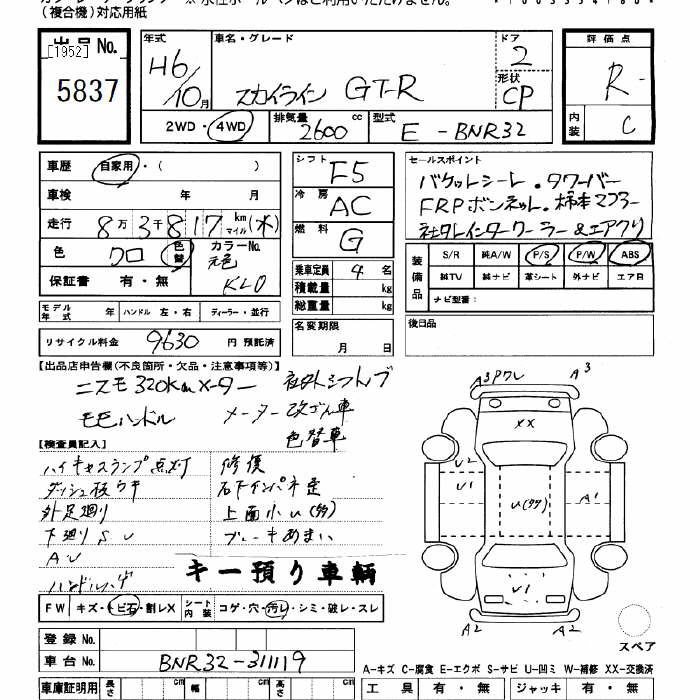 (複合機)対応用紙
出品No.
[1952]
5837
年式
H6/10月
車名・グレード
スカイライン GT-R
ドア
2
形状
CP
評価点
R
内装
C
2WD・4WD
排気量
2600 cc
型式
E-BNR32
車歴
自家用・( )
車検 年 月
走行 8万3千817 km マイル
色 クロ 色替
カラーNo.
元色
KL0
保証書 有・無
シフト F5
冷房 AC
燃料 G
乗車定員 4 名
積載量 kg
総重量 kg
セールスポイント
バケットシート・タワーバー
FRPボンネット・柿本マフラー
社外インタークーラー&エアクリ
装備品
S/R 純A/W P/S P/W ABS
純TV 純ナビ 革シート 外ナビ エアB
ナビ型番:
モデル年式 年 ハンドル 左・右 ディーラー・並行
名変期限
月 日
後日品
リサイクル料金 9630 円 預託済
【出品店申告欄(不良箇所・欠品・注意事項等)】
ニスモ 320Kmメーター 社外シフトノブ
モモハンドル メーター改ざん車
色替車
【検査員記入】
ハイキャスランプ点灯 修復
ダッシュ板ウキ 右下インパネ歪
外足廻り 上面小U(多)
下廻りSU ブレーキあまい
AU
キー預り車輌
FW キズ・トビ石・割レX シート内装 コゲ・穴・汚レ・シミ・破レ・スレ
登録No.
車台No. BNR32-311119
車庫証明用 長さ cm 幅 cm 高さ cm
A3 Pワレ
A3
XX
U2
U1
U(多)
A1
U1
A2
A2
スペア
A-キズ C-腐食 E-エクボ S-サビ U-凹ミ W-補修 XX-交換済
工具 有・無 ジャッキ 有・無